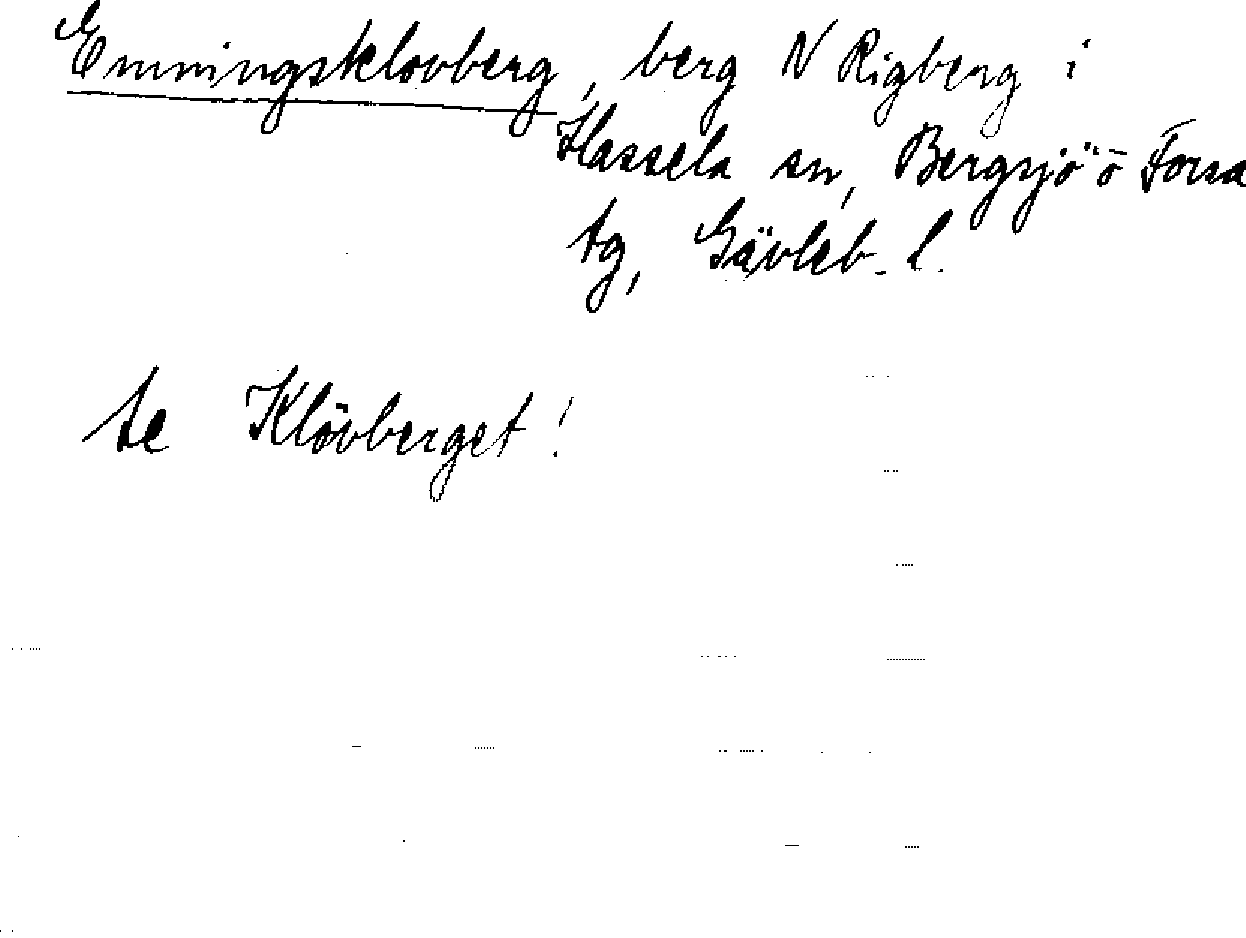 Emningsklovberg, berg N Rigberg i
Hassela sn, Bergsjö o Forsa
tg, Gävleb. l.
se Klövberget!